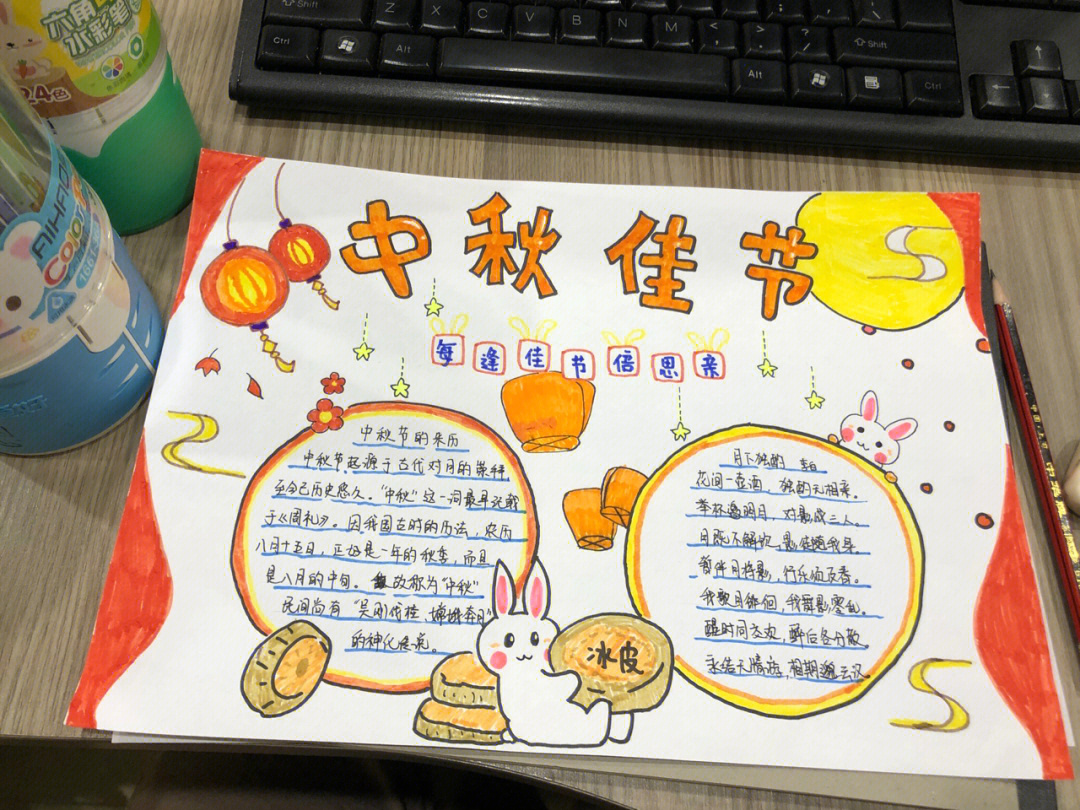 Shift
Z X C V B N M
Ctrl
Alt
Alt
Ctrl
Shift
六角
水彩笔
24色
AIHAO
Color
中秋佳节
每逢佳节倍思亲
中秋节的来历
中秋节起源于古代对月的崇拜
至今已历史悠久。"中秋"这一词最早记载
于《周礼》。因我国古时的历法,农历
八月十五日,正好是一年的秋季,而且
是八月的中旬。故称为"中秋"
民间尚有"吴刚伐桂,嫦娥奔月"
的神化
月下独酌
花间一壶酒,独酌无相亲。
举杯邀明月,对影成三人。
月既不解饮,影徒随我身。
暂伴月将影,行乐须及春。
我歌月徘徊,我舞影零乱。
醒时同交欢,醉后各分散
永结无情游,相期邈云汉
冰皮